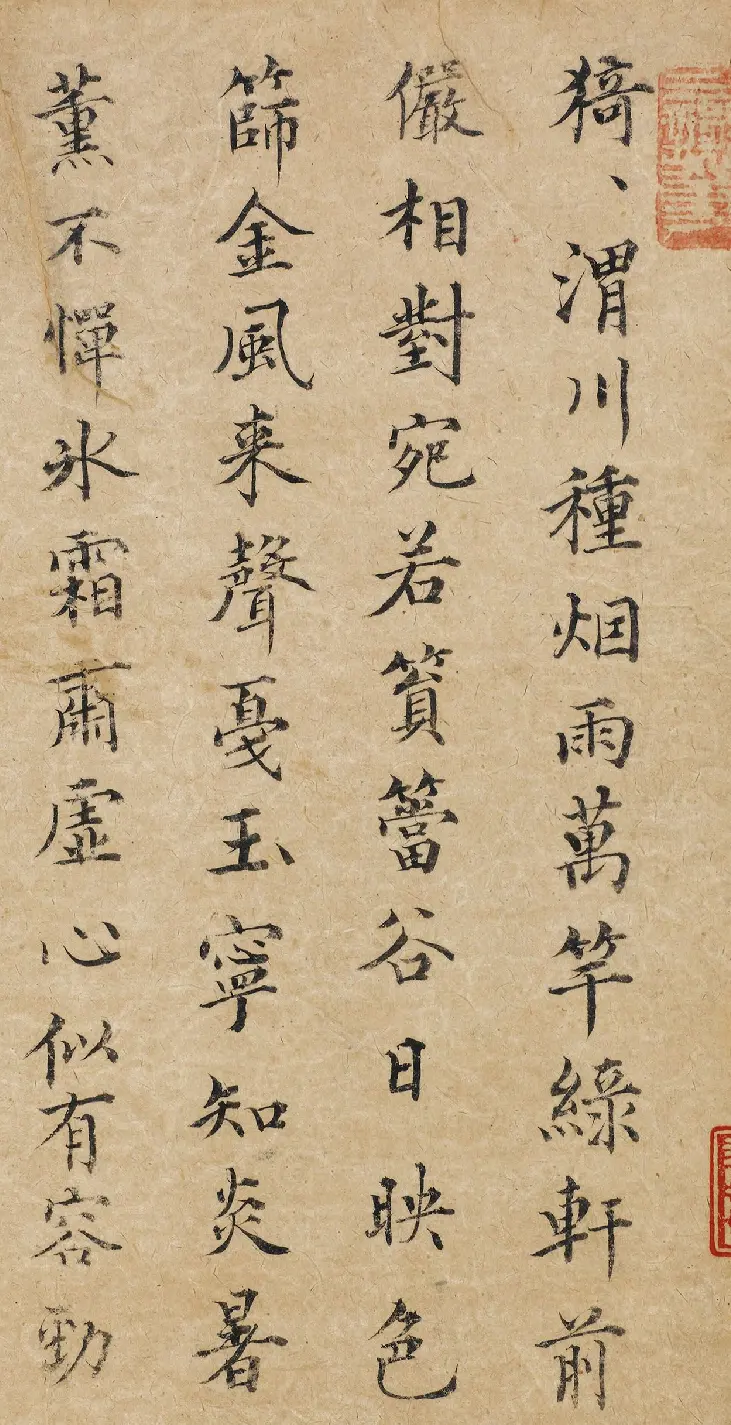 猗、渭川種烟雨萬竿綠軒前
儼相對宛若篔簹谷日映色
篩金風来聲戛玉寧知炎暑
薰不憚氷霜肅虛心似有容勁